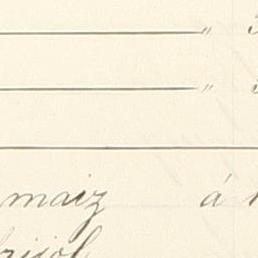 "
"
maiz á
frijol